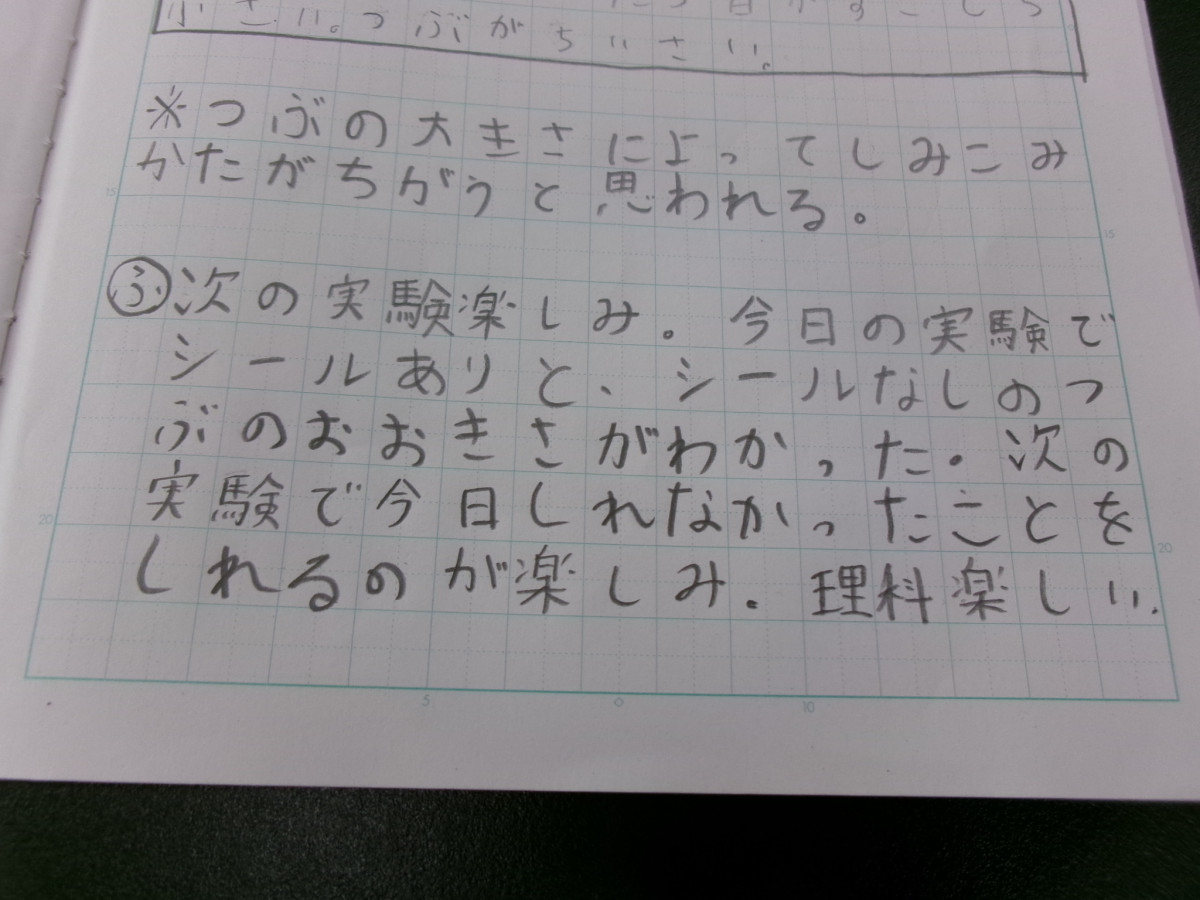 小さい。つぶがちいさい。
※つぶの大きさに上ってしみこみ
かたがちがうと思われる。
ふ次の実験楽しみ。今日の実験で
シールありと、シールなしのつ
ぶのおおきさがわかった。次の
実験で今日しれなかったことを
しれるのが楽しみ。理科楽しい。